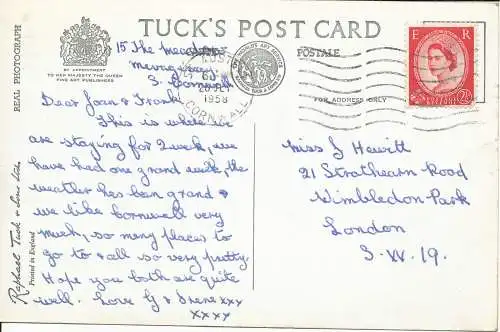 TUCK'S POST CARD
REAL PHOTOGRAPH
BY APPOINTMENT
TO HER MAJESTY THE QUEEN
FINE ART PUBLISHERS
POSTALE
FOR ADDRESS ONLY
E R
2½
1958
CORNWALL
Raphael Tuck & Sons Ltd.
Printed in England
15 The meadows
S. Cornwall
Dear Joan & Frank
This is where we
are staying for 2 week, we
have had one grand week, the
weather hes been grand &
we like cornwall very
much, so meny places to
go to & all so very pretty.
Hope you both are quite
well. Love G & Irene xxx
xxxx
miss J Hewitt
21 Strathearn Road
Wimbledon Park
London
S.W. 19.